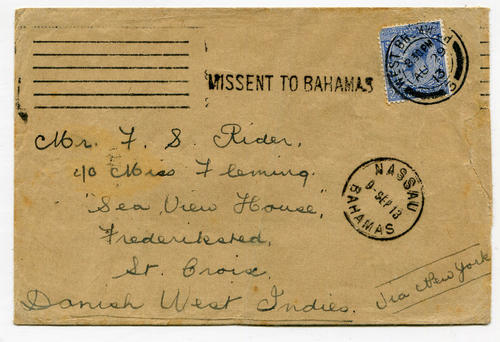 WEST BR
8 PM
AU 29
13
MISSENT TO BAHAMAS
Mr. F. S. Rider,
c/o Miss Fleming.
"Sea View House,"
Frederiksted,
St. Croix,
Danish West Indies.
Via New York
NASSAU
9 SEP 13
BAHAMAS